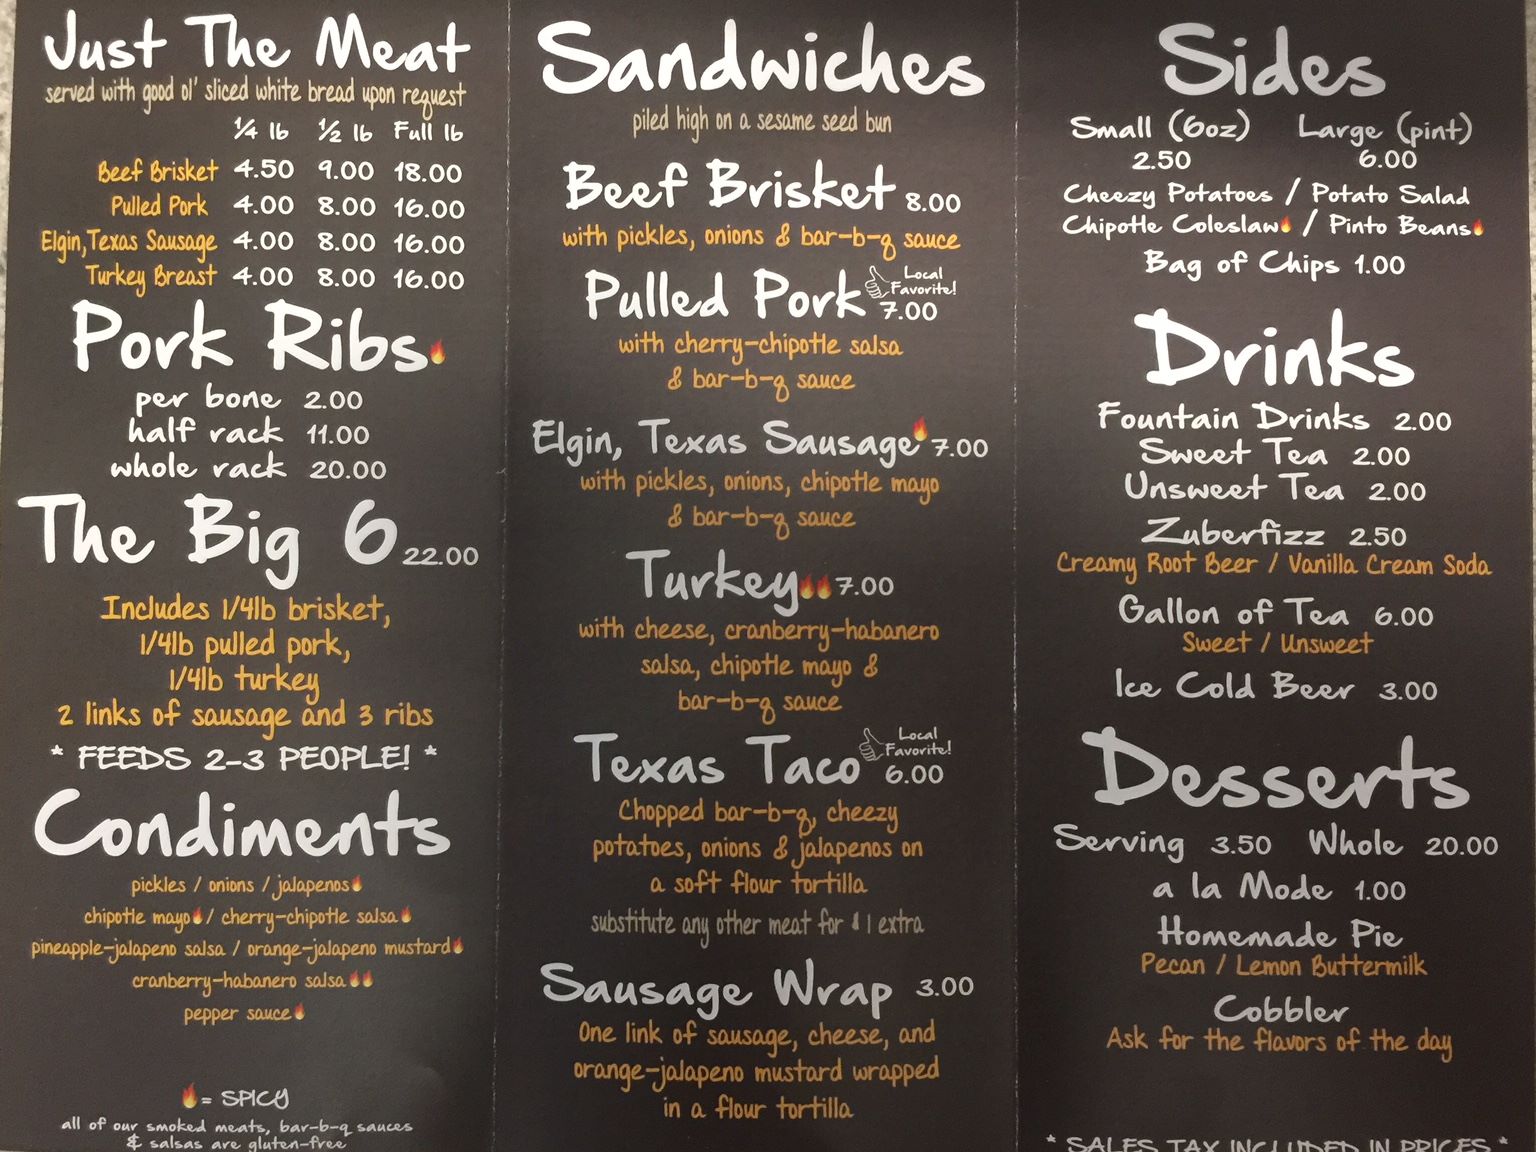 Just The Meat
served with good ol' sliced white bread upon request
1/4 lb 1/2 lb Full lb
Beef Brisket 4.50 9.00 18.00
Pulled Pork 4.00 8.00 16.00
Elgin, Texas Sausage 4.00 8.00 16.00
Turkey Breast 4.00 8.00 16.00
Pork Ribs
per bone 2.00
half rack 11.00
whole rack 20.00
The Big 6 22.00
Includes 1/4lb brisket,
1/4lb pulled pork,
1/4lb turkey
2 links of sausage and 3 ribs
* FEEDS 2-3 PEOPLE! *
Condiments
pickles / onions / jalapenos
chipotle mayo / cherry-chipotle salsa
pineapple-jalapeno salsa / orange-jalapeno mustard
cranberry-habanero salsa
pepper sauce
= SPICY
all of our smoked meats, bar-b-q sauces
& salsas are gluten-free
Sandwiches
piled high on a sesame seed bun
Beef Brisket 8.00
with pickles, onions & bar-b-q sauce
Pulled Pork Local Favorite! 7.00
with cherry-chipotle salsa
& bar-b-q sauce
Elgin, Texas Sausage 7.00
with pickles, onions, chipotle mayo
& bar-b-q sauce
Turkey 7.00
with cheese, cranberry-habanero
salsa, chipotle mayo &
bar-b-q sauce
Texas Taco Local Favorite! 6.00
Chopped bar-b-q, cheezy
potatoes, onions & jalapenos on
a soft flour tortilla
substitute any other meat for $1 extra
Sausage Wrap 3.00
One link of sausage, cheese, and
orange-jalapeno mustard wrapped
in a flour tortilla
Sides
Small (6oz) Large (pint)
2.50 6.00
Cheezy Potatoes / Potato Salad
Chipotle Coleslaw / Pinto Beans
Bag of Chips 1.00
Drinks
Fountain Drinks 2.00
Sweet Tea 2.00
Unsweet Tea 2.00
Zuberfizz 2.50
Creamy Root Beer / Vanilla Cream Soda
Gallon of Tea 6.00
Sweet / Unsweet
Ice Cold Beer 3.00
Desserts
Serving 3.50 Whole 20.00
a la Mode 1.00
Homemade Pie
Pecan / Lemon Buttermilk
Cobbler
Ask for the flavors of the day
* SALES TAX INCLUDED IN PRICES *